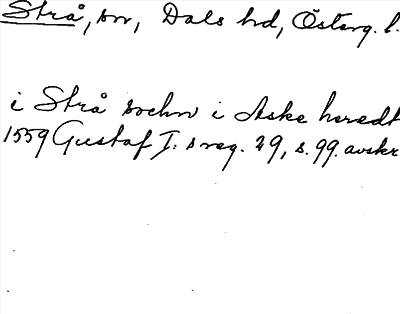 Strå, sn, Dals hd, Österg. l.
i Strå sochn i Aske heredt
1559 Gustaf I:s reg. 29, s. 99. avskr